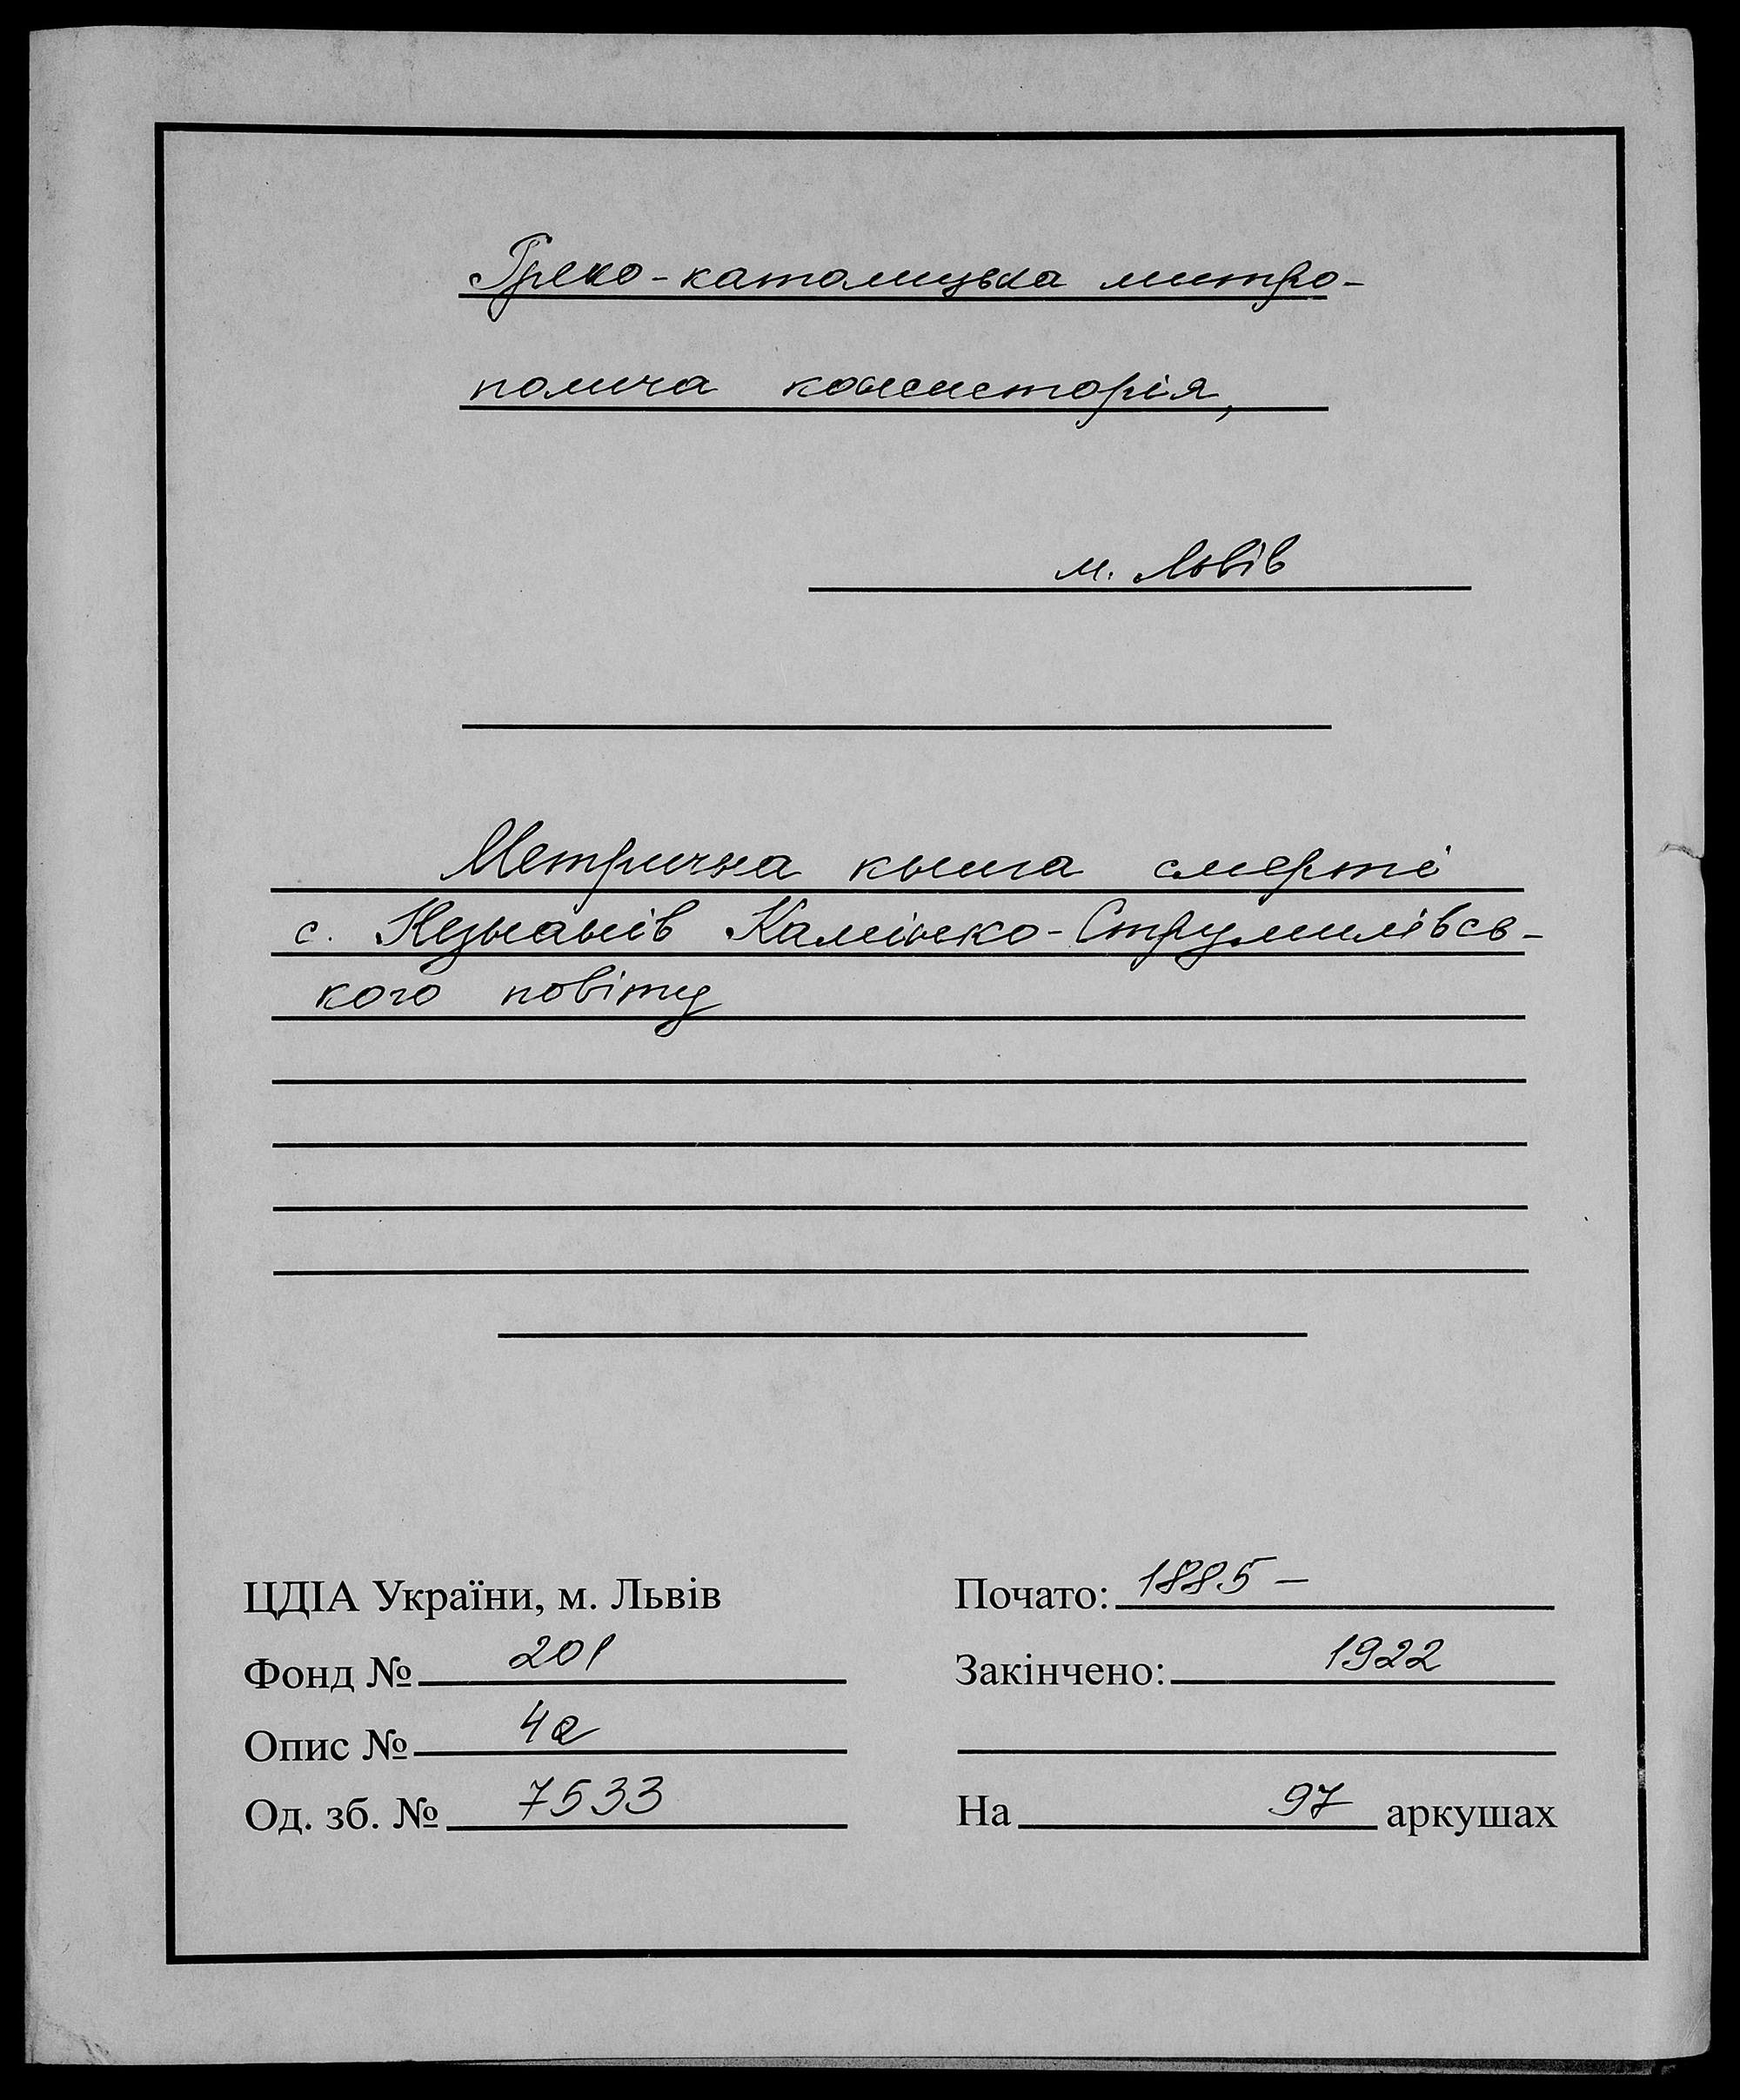 Греко-католицька митро-
полича консисторія,
м. Львів
Метрична книга смерті
с. Незнанів Камінко-Струмилівсь-
кого повіту
ЦДІА України, м. Львів
Фонд № 201
Опис № 4а
Од. зб. № 7533
Почато: 1885 –
Закінчено: 1922
На 97 аркушах